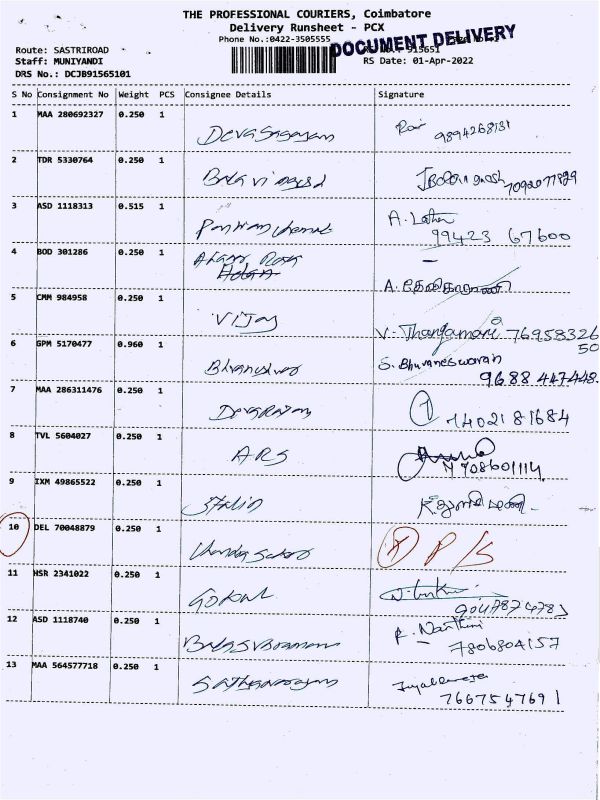 THE PROFESSIONAL COURIERS, Coimbatore
Delivery Runsheet - PCX
Phone No.:0422-3505555
DOCUMENT DELIVERY
Route: SASTRIROAD
915651
Staff: MUNIYANDI
RS Date: 01-Apr-2022
DRS No.: DCJB91565101
S No Consignment No Weight PCS Consignee Details Signature
1 MAA 280692327 0.250 1
Devasagayam
2 TDR 5330764 0.250 1
3 ASD 1118313 0.515 1
A. Latha
99423 67600
4 BOD 301286 0.250 1
5 CMM 984958 0.250 1
Vijay V. Thangamari 7695832650
6 GPM 5170477 0.960 1
Bhuvaneshwar S. Bhuvaneswaran
9688 447448.
7 MAA 286311476 0.250 1
Devarajan 1 7402181684
8 TVL 5604027 0.250 1
ARS
9708601114
9 IXM 49865522 0.250 1
Stalin
10 DEL 70048879 0.250 1
Chandra Sekar P/S
11 HSR 2341022 0.250 1
Gokul
9047874783
12 ASD 1118740 0.250 1
R. Nanthini
7806804157
13 MAA 564577718 0.250 1
Sathyanarayanan
7667547691